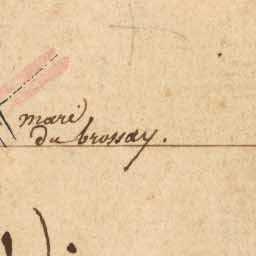 mare
du brossay.